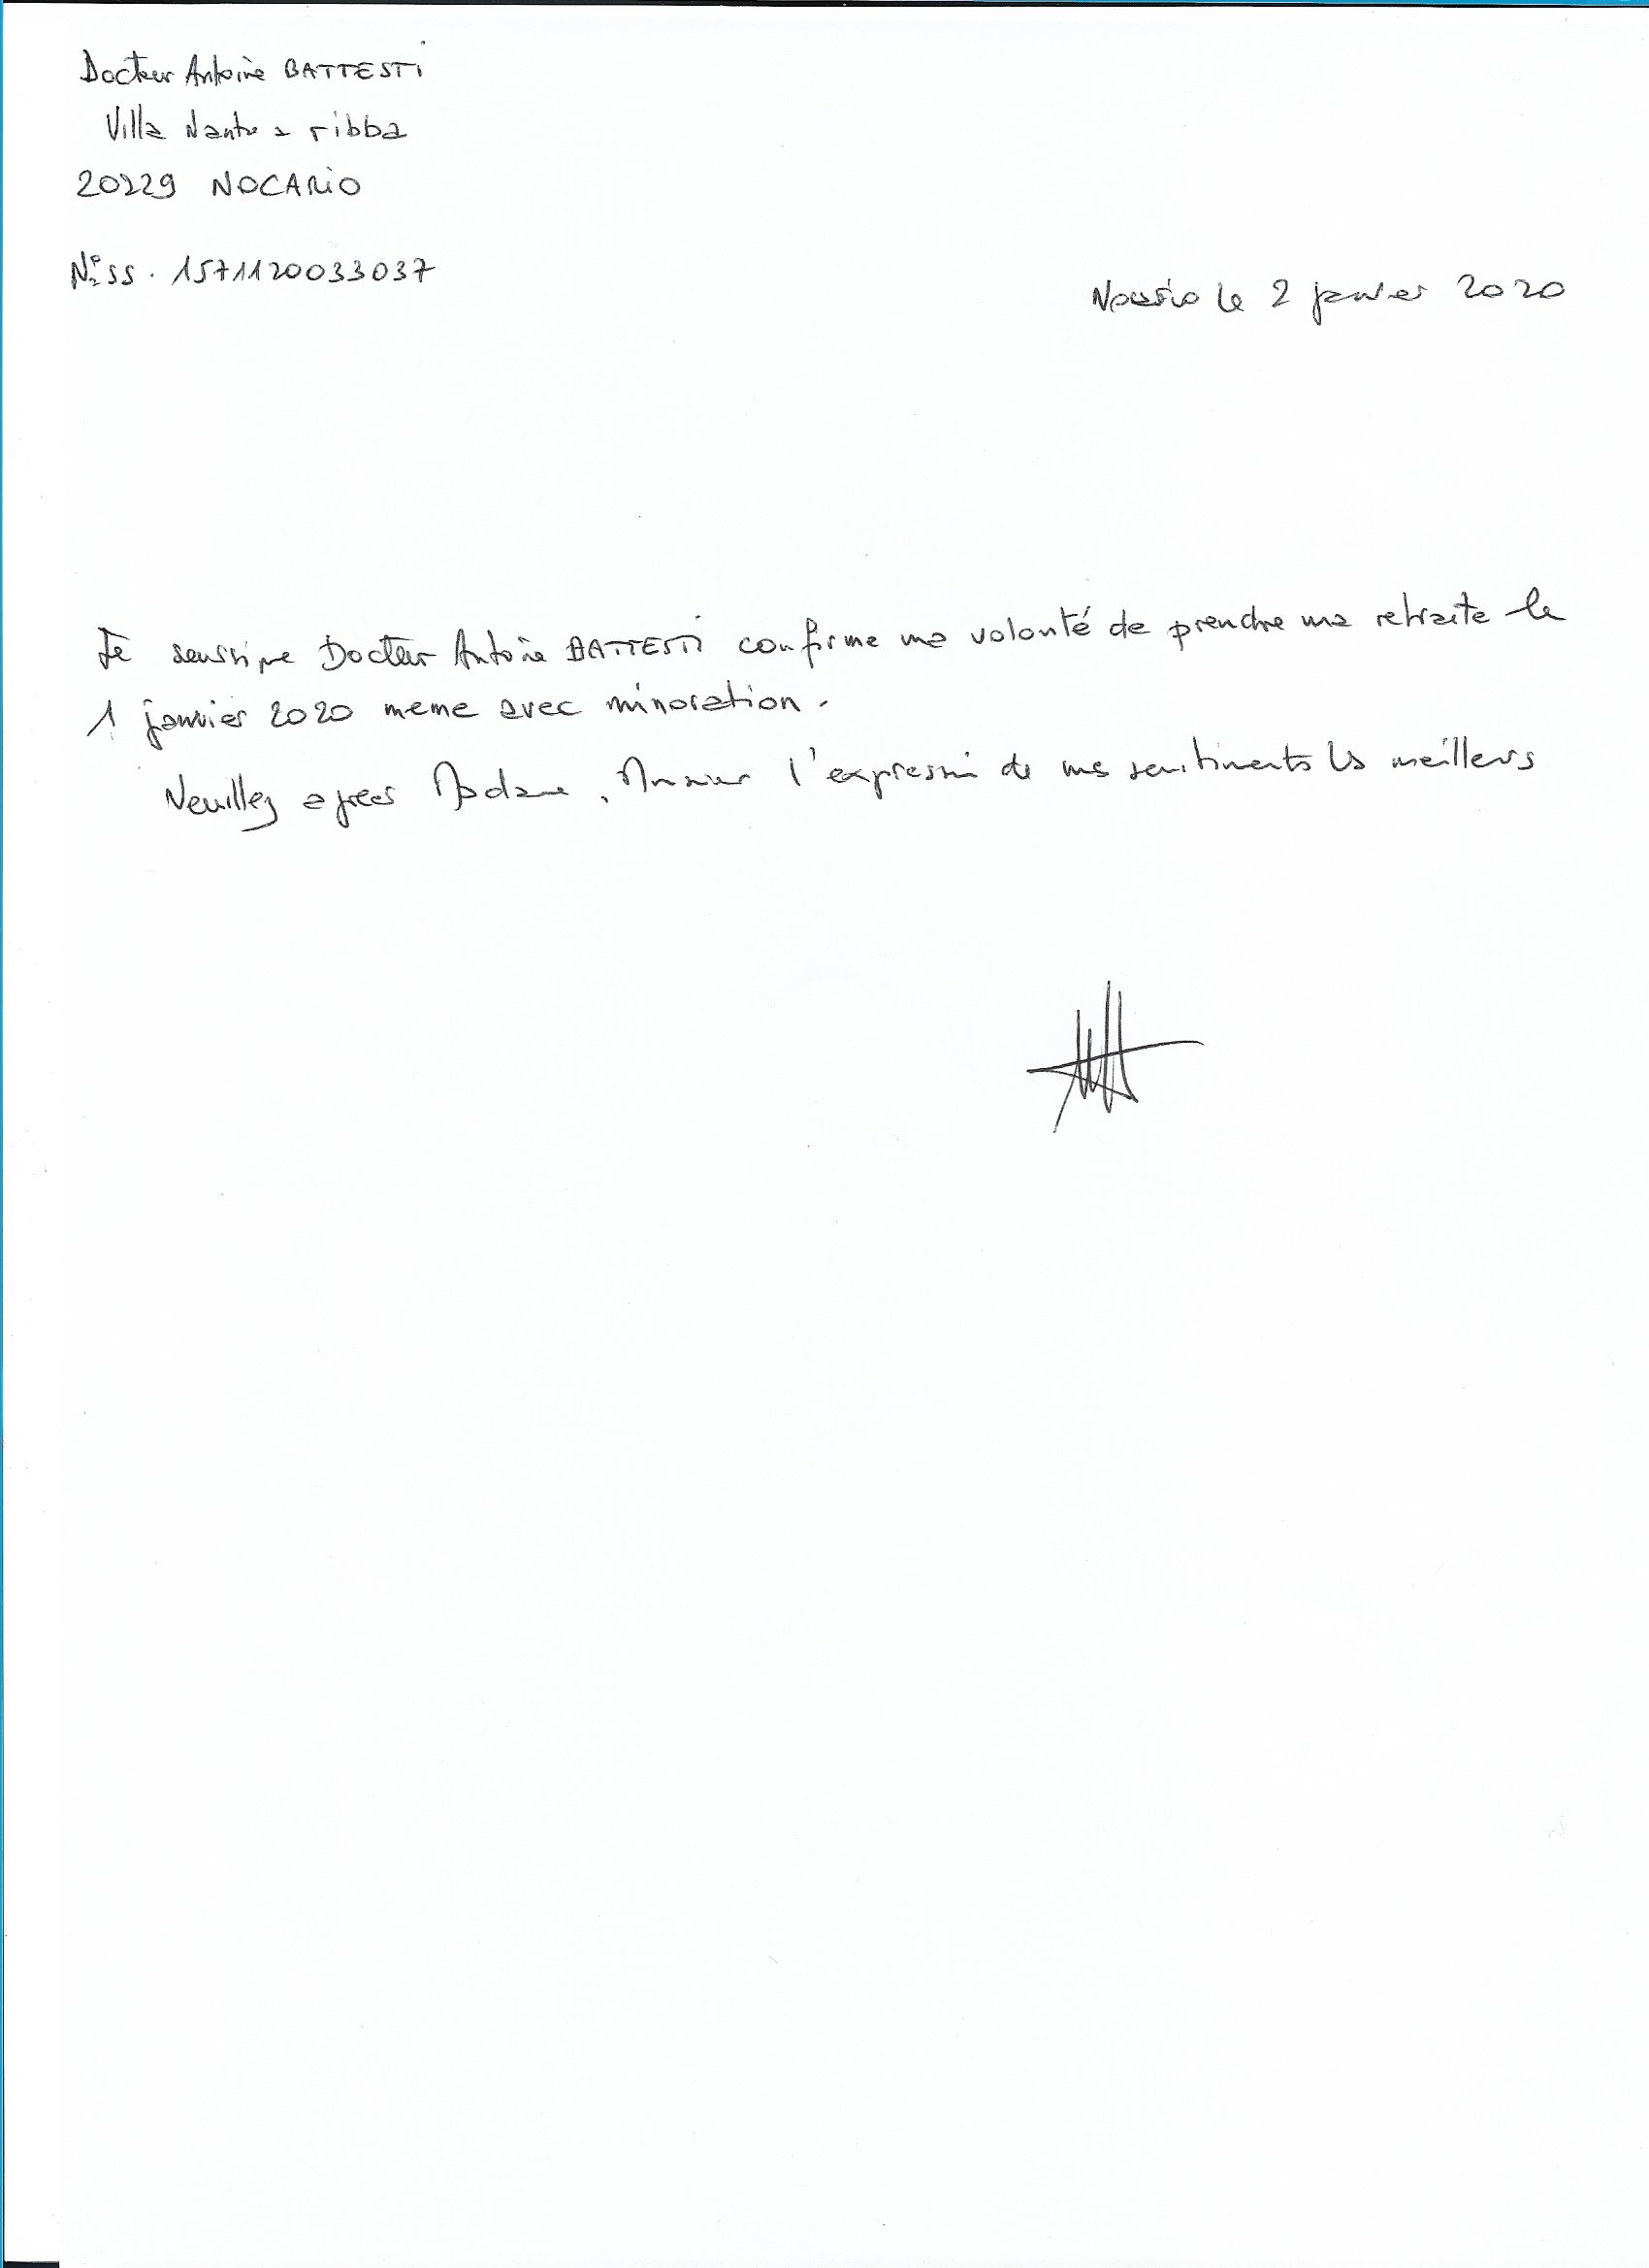 Docteur Antoine BATTESTI
Villa Nantu a ribba
20229 NOCARIO
N° SS. 1571120033037
Nocario le 2 janvier 2020
Je soussigne Docteur Antoine BATTESTI confirme ma volonté de prendre ma retraite le
1 janvier 2020 meme avec minoration.
Veuillez agreer Madame, Monsieur l'expression de mes sentiments les meilleurs